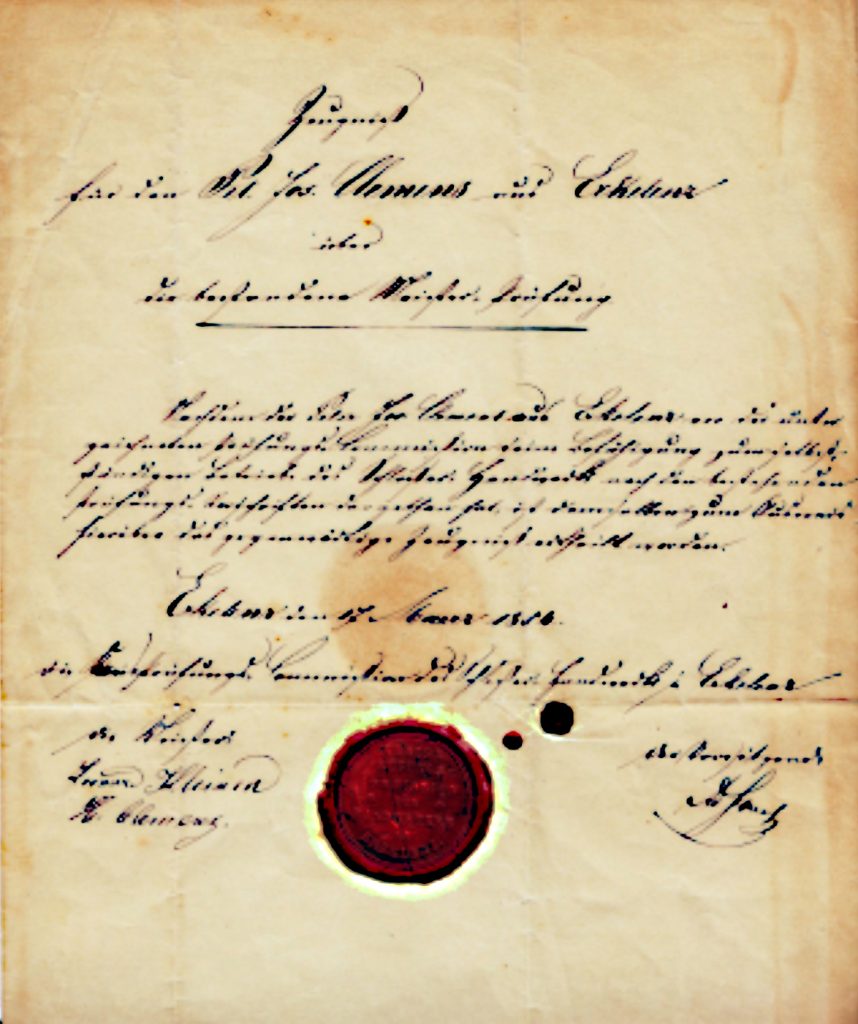 Zeugniß
für den Pet. Jos. Clemens aus Erkelenz
über
die bestandene Meister-Prüfung
Nachdem der Peter Jos. Clemens aus Erkelenz vor der unter
zeichneten Prüfungs-Commission seine Befähigung zum selbst-
ständigen Betriebe des Schlosser-Handwerks nach den bestehenden
Prüfungs-Vorschriften dargethan hat, ist demselben zum Ausweis
hierüber das gegenwärtige Zeugniß ertheilt worden.
Erkelenz den 17 Maerz 185
die Kreisprüfungs-Commission des Schlosser-Handwerks i. Erkelenz
die Meister: der Vorsitzende
Clemens.